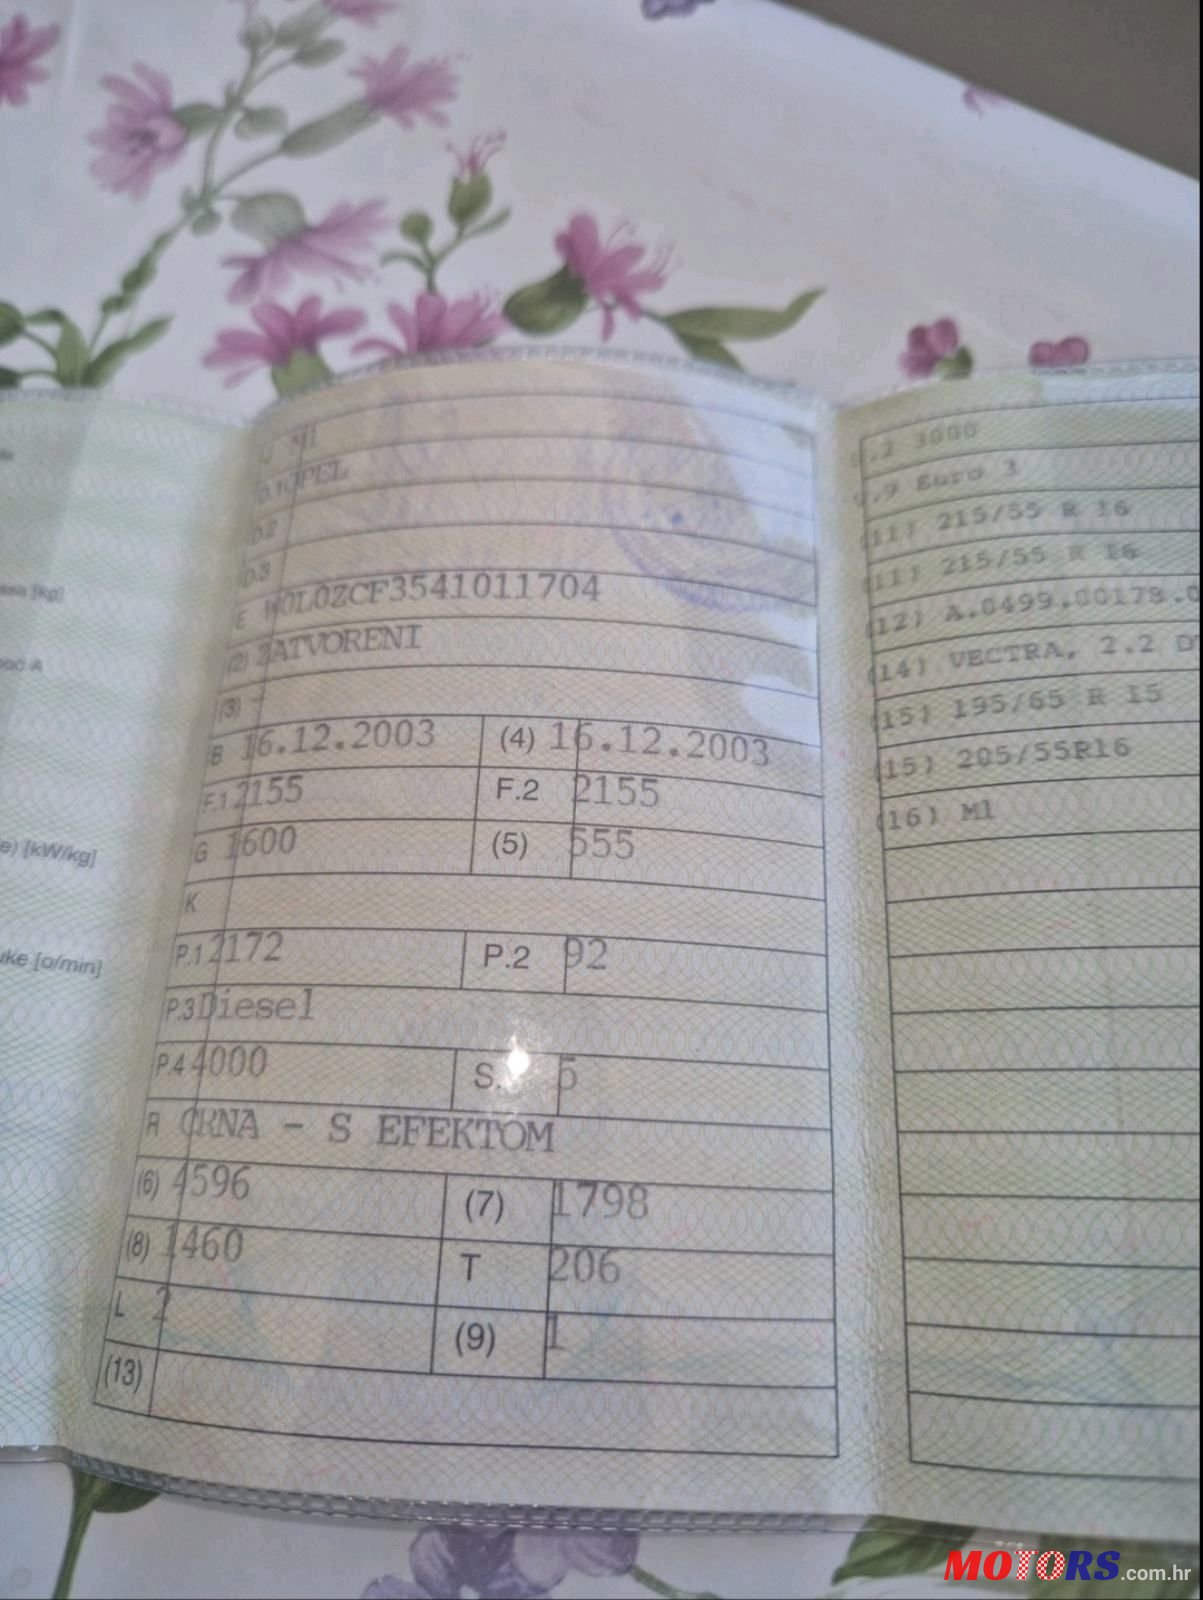 [kg]
A
e) [kW/kg]
[o/min]
J M1
D.1 OPEL
D.2
D.3
E W0L0ZCF3541011704
(2) ZATVORENI
(3) -
B 16.12.2003 (4) 16.12.2003
F.1 2155 F.2 2155
G 1600 (5) 555
K
P.1 2172 P.2 92
P.3 Diesel
P.4 4000 S. 5
R CRNA - S EFEKTOM
(6) 4596 (7) 1798
(8) 1460 T 206
L 2 (9) 1
(13)
.2 3000
.9 Euro 3
(11) 215/55 R 16
(11) 215/55 R 16
(12) A.0499.00178.0
(14) VECTRA, 2.2 D
(15) 195/65 R 15
(15) 205/55R16
(16) M1
MOTORS.com.hr